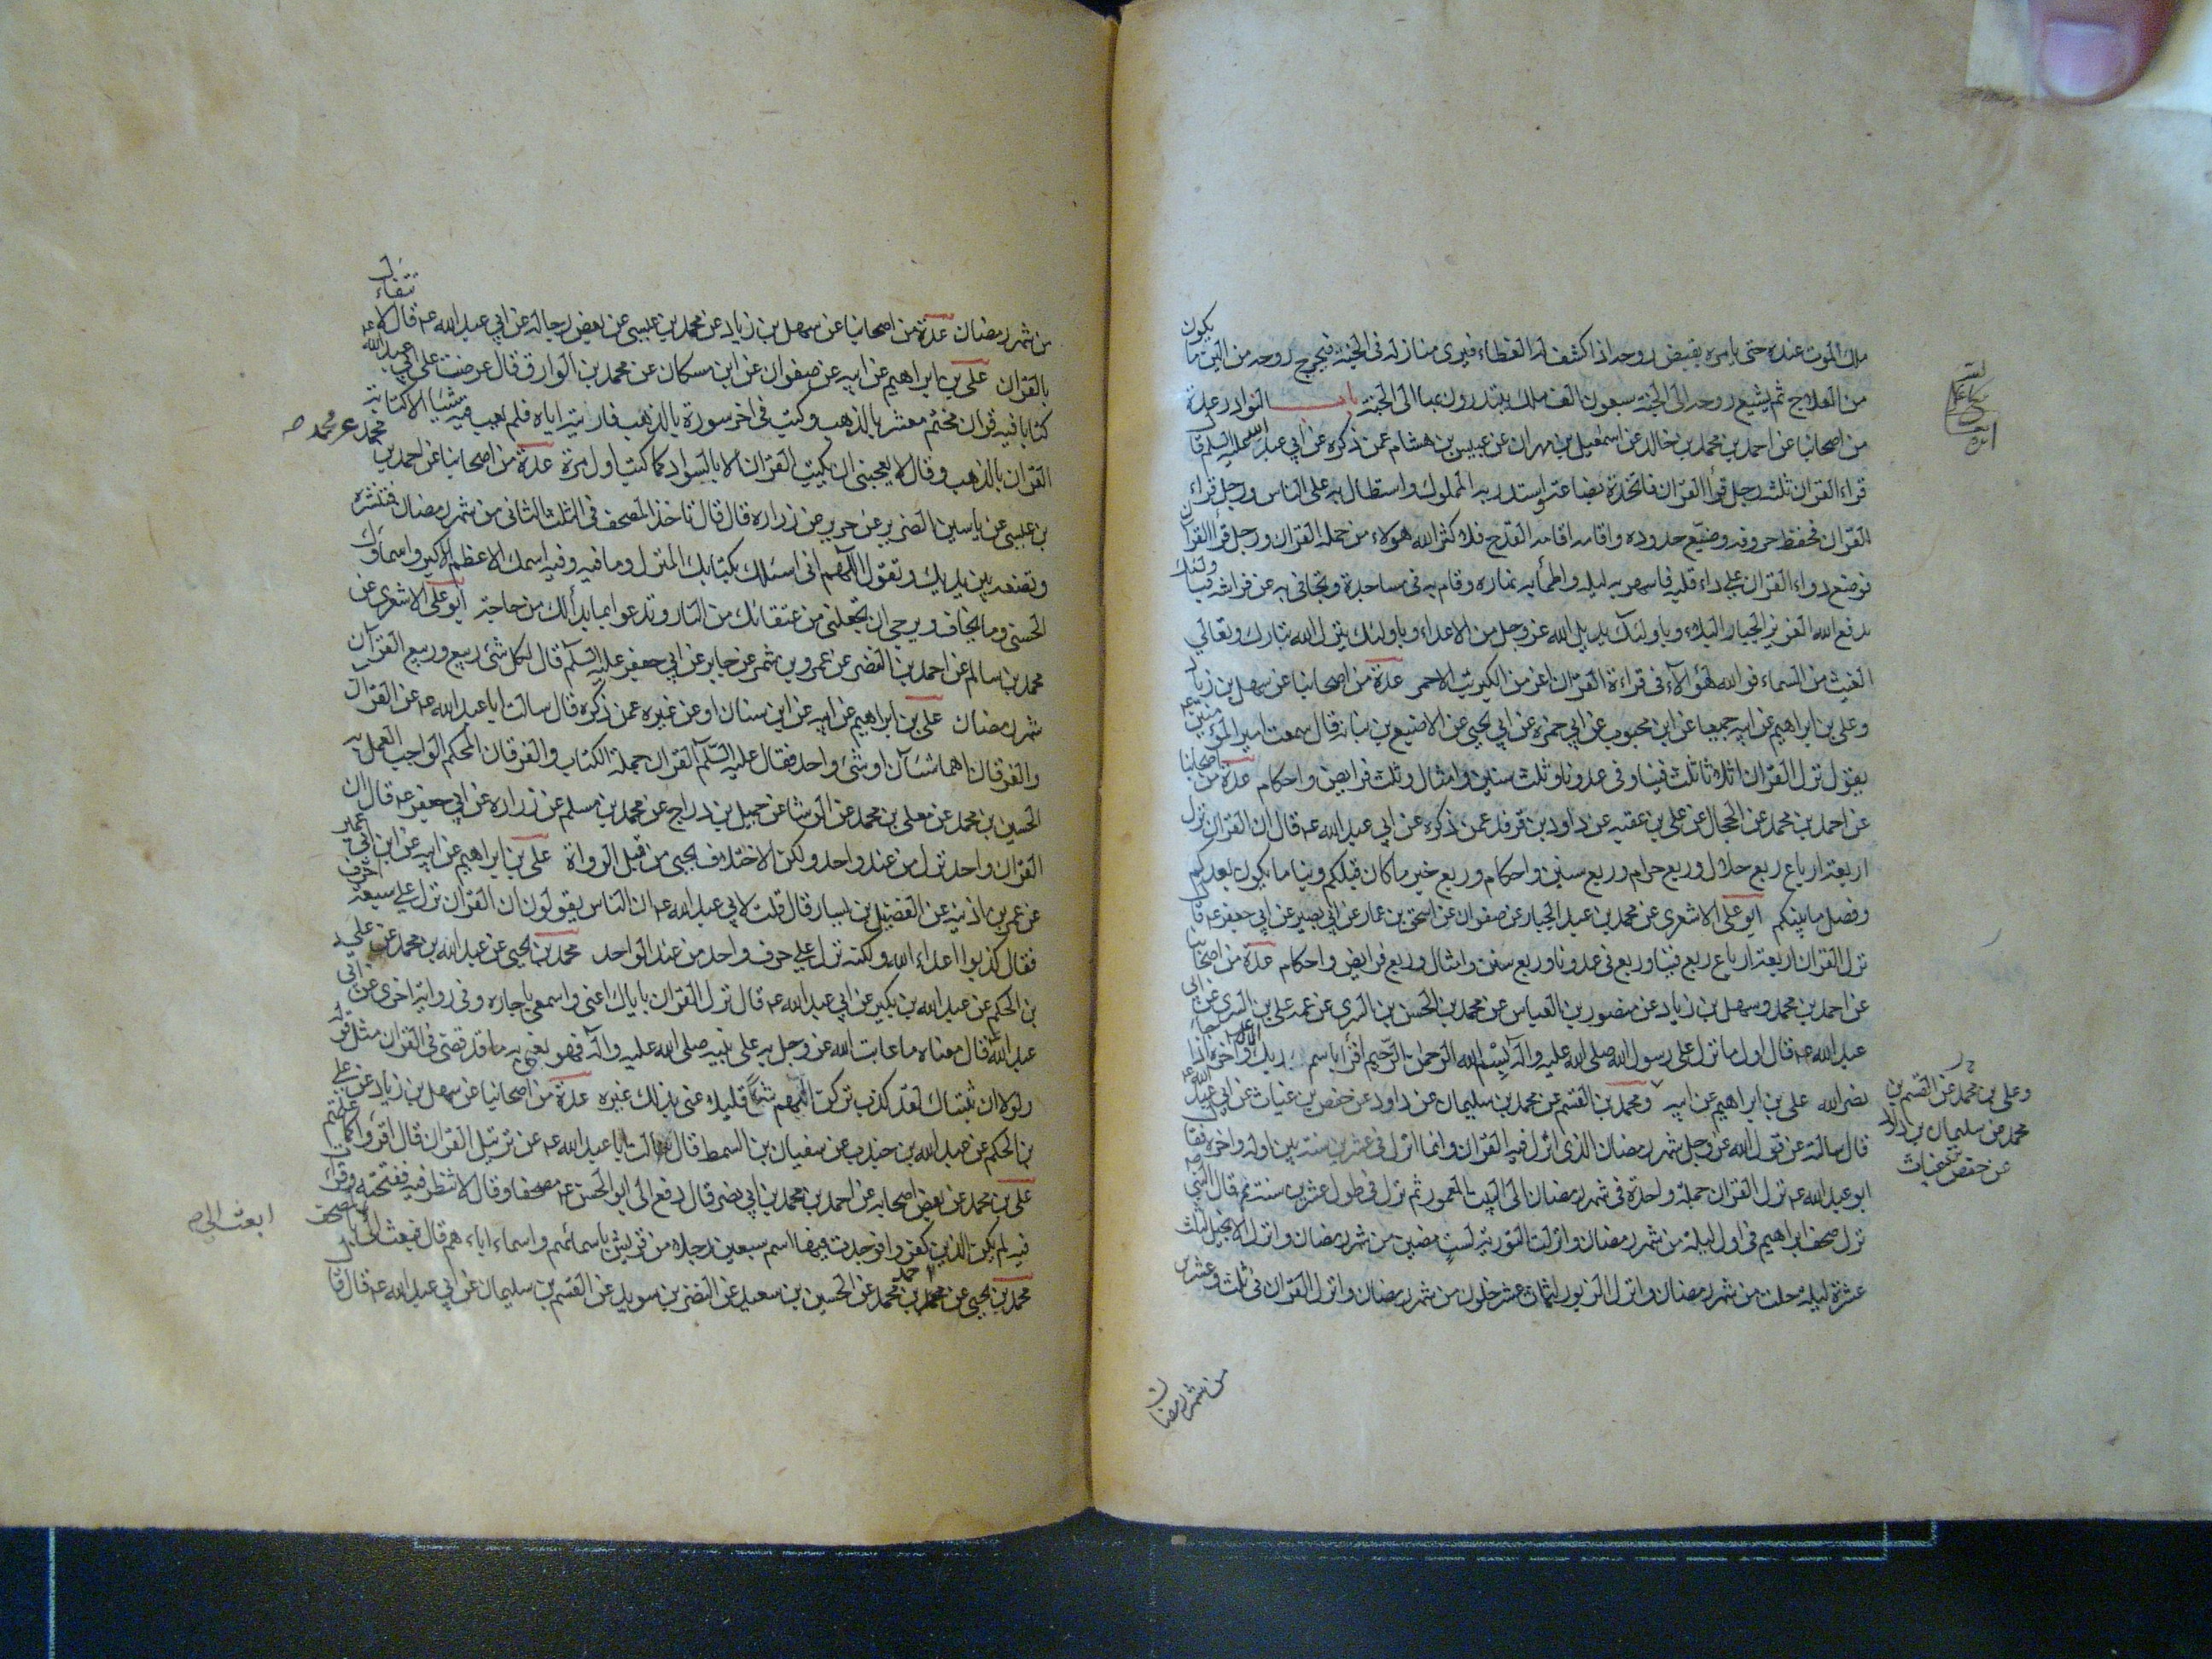 ملك الموت عنده حتى يامره يقبض روحه اذا كشف له الغطاء فيرى منازله فى الجنة فيخرج روحه من الين ما يكون
من العلاج ثم يشيع روحه الى الجنة سبعون الف ملك يبتدرون بها الى الجنة باب النوادر عدة
من اصحابنا عن احمد بن محمد بن خالد عن اسمعيل بن مهران عن عبيس بن هشام عمن ذكره عن ابي عبد الله عليه السلم قال
قراء القران ثلثه رجل قرأ القران فاتخذه بضاعة واستدر به الملوك واستطال به على الناس ورجل قراء
القران فحفظ حروفه وضيّع حدوده واقامه اقامه القدح فلا كثر الله هولاء من حملة القران ورجل قرأ القران
فوضع دواء القران على داء قلبه فاسهر به ليله واظمأ به نهاره وقام به فى مساجده وتجافى به عن فراشه فباولئك
يدفع الله العزيز الجبار البلاء وباولئك يديل الله عز وجل من الاعداء وباولئك ينزل الله تبارك وتعالى
الغيث من السماء فو الله لهؤلاء فى قراءة القران اعز من الكبريت الاحمر عدة من اصحابنا عن سهل بن زياد
وعلي بن ابراهيم عن ابيه جميعا عن ابن محبوب عن ابي حمزه عن ابي يحيى عن الاصبغ بن نباته قال سمعت امير المؤمنين
يقول نزل القران اثلاثا ثلث فينا وفى عدونا وثلث سنن وامثال وثلث فرايض واحكام عدة من اصحابنا
عن احمد بن محمد عن الحجال عن علي بن عقبه عن داود بن فرقد عمن ذكره عن ابي عبد الله عه قال ان القران نزل
اربعة ارباع ربع حلال وربع حرام وربع سنن واحكام وربع خبر ما كان قبلكم ونبا ما يكون بعدكم
وفصل ما بينكم ابو علي الاشعري عن محمد بن عبد الجبار عن صفوان عن اسحق بن عمار عن ابي بصير عن ابي جعفر عه قال
نزل القران اربعة ارباع ربع فينا وربع فى عدونا وربع سنن وامثال وربع فرايض واحكام عدة من اصحابنا
عن احمد بن محمد وسهل بن زياد عن منصور بن العباس عن محمد بن الحسن بن السرى عن عمه علي بن السرى عن ابي
عبد الله عه قال اول ما نزل على رسول الله صلى الله عليه واله بسم الله الرحمن الرحيم اقرأ باسم ربك واخره اذا جاء
نصر الله علي بن ابراهيم عن ابيه ومحمد بن القسم عن محمد بن سليمان عن داود عن حفص بن غياث عن ابي عبد الله عه
وعلى بن محمد عن القسم بن
محمد عن سليمان بن داود
عن حفص بن غياث
قال سالته عن قول الله عز وجل شهر رمضان الذى انزل فيه القران وانما انزل فى عشرين سنة بين اوله واخره فقال
ابو عبد الله عه نزل القران جملة واحدة فى شهر رمضان الى البيت المعمور ثم نزل فى طول عشرين سنة ثم قال النبي
نزل صحف ابراهيم فى اول ليلة من شهر رمضان وانزلت التورية لست مضين من شهر رمضان وانزل الانجيل لثلث
عشرة ليله خلت من شهر رمضان وانزل الزبور لثمان عشر خلون من شهر رمضان وانزل القران فى ثلث وعشرين
من شهر رمضان
من شهر رمضان عدة من اصحابنا عن سهل بن زياد عن محمد بن عيسى عن بعض رجاله عن ابي عبد الله عه قال لا تتفاءل
بالقران علي بن ابراهيم عن ابيه عن صفوان عن ابن مسكان عن محمد بن الوراق قال عرضت على ابي عبد الله عه
كتابا فيه قران مختم معشر بالذهب وكتب فى اخره سورة بالذهب فاريته اياه فلم يعب فيه شيئا الا كتابة
القران بالذهب وقال لا يعجبنى ان يكتب القران الا بالسواد كما كتب اول مرة عدة من اصحابنا عن احمد بن
محمد عن محمد صح
بن عيسى عن ياسين الضرير عن حريز عن زراره قال قال تاخذ المصحف فى الثلث الثانى من شهر رمضان فتنشره
وتضعه بين يديك وتقول اللهم انى اسئلك بكتابك المنزل وما فيه وفيه اسمك الاعظم الاكبر واسماؤك
الحسنى وما يخاف ويرجى ان تجعلنى من عتقائك من النار وتدعو بما بدا لك من حاجة ابو علي الاشعرى عن
محمد بن سالم عن احمد بن النضر عن عمرو بن شمر عن جابر عن ابي جعفر عليه السلم قال لكل شئ ربيع وربيع القران
شهر رمضان علي بن ابراهيم عن ابيه عن ابن سنان او عن غيره عمن ذكره قال سالت ابا عبد الله عه عن القران
والفرقان اهما شيئان او شئ واحد فقال عليه السلم القران جملة الكتاب والفرقان المحكم الواجب العمل به
الحسين بن محمد عن معلى بن محمد عن الوشا عن جميل بن دراج عن محمد بن مسلم عن زراره عن ابي جعفر عه قال ان
القران واحد نزل من عند واحد ولكن الاختلاف يجيى من قبل الرواة علي بن ابراهيم عن ابيه عن ابن ابى عمير
عن عمر بن اذينه عن الفضيل بن يسار قال قلت لابي عبد الله عه ان الناس يقولون ان القران نزل على سبعة احرف
فقال كذبوا اعداء الله ولكنه نزل على حرف واحد من عند الواحد محمد بن يحيى عن عبد الله بن محمد عن علي
بن الحكم عن عبد الله بن بكير عن ابي عبد الله عه قال نزل القران باياك اعنى واسمعى يا جاره وفى رواية اخرى عن ابى
عبد الله قال معناه ما عاتب الله عز وجل به على نبيه صلى الله عليه واله فهو يعنى به ما قد قضى فى القران مثل قوله
ولولا ان ثبتناك لقد كدت تركن اليهم شيئا قليلا عنى بذلك غيره عدة من اصحابنا عن سهل بن زياد عن علي
بن الحكم عن عبد الله بن جندب عن سفيان بن السمط قال سالت ابا عبد الله عه عن تنزيل القران قال اقرؤا كما علمتم
علي بن محمد عن بعض اصحابه عن احمد بن محمد بن ابي نصر قال دفع الى ابو الحسن عه مصحفا وقال لا تنظر فيه ففتحته وقرات
فيه لم يكن الذين كفروا فوجدت فيها اسم سبعين رجلا من قريش باسمائهم واسماء اباءهم قال فبعث الى بالمصحف
ابعث الي صح
محمد بن يحيى عن احمد بن محمد عن الحسين بن سعيد عن النضر بن سويد عن القسم بن سليمان عن ابي عبد الله عه قال قا